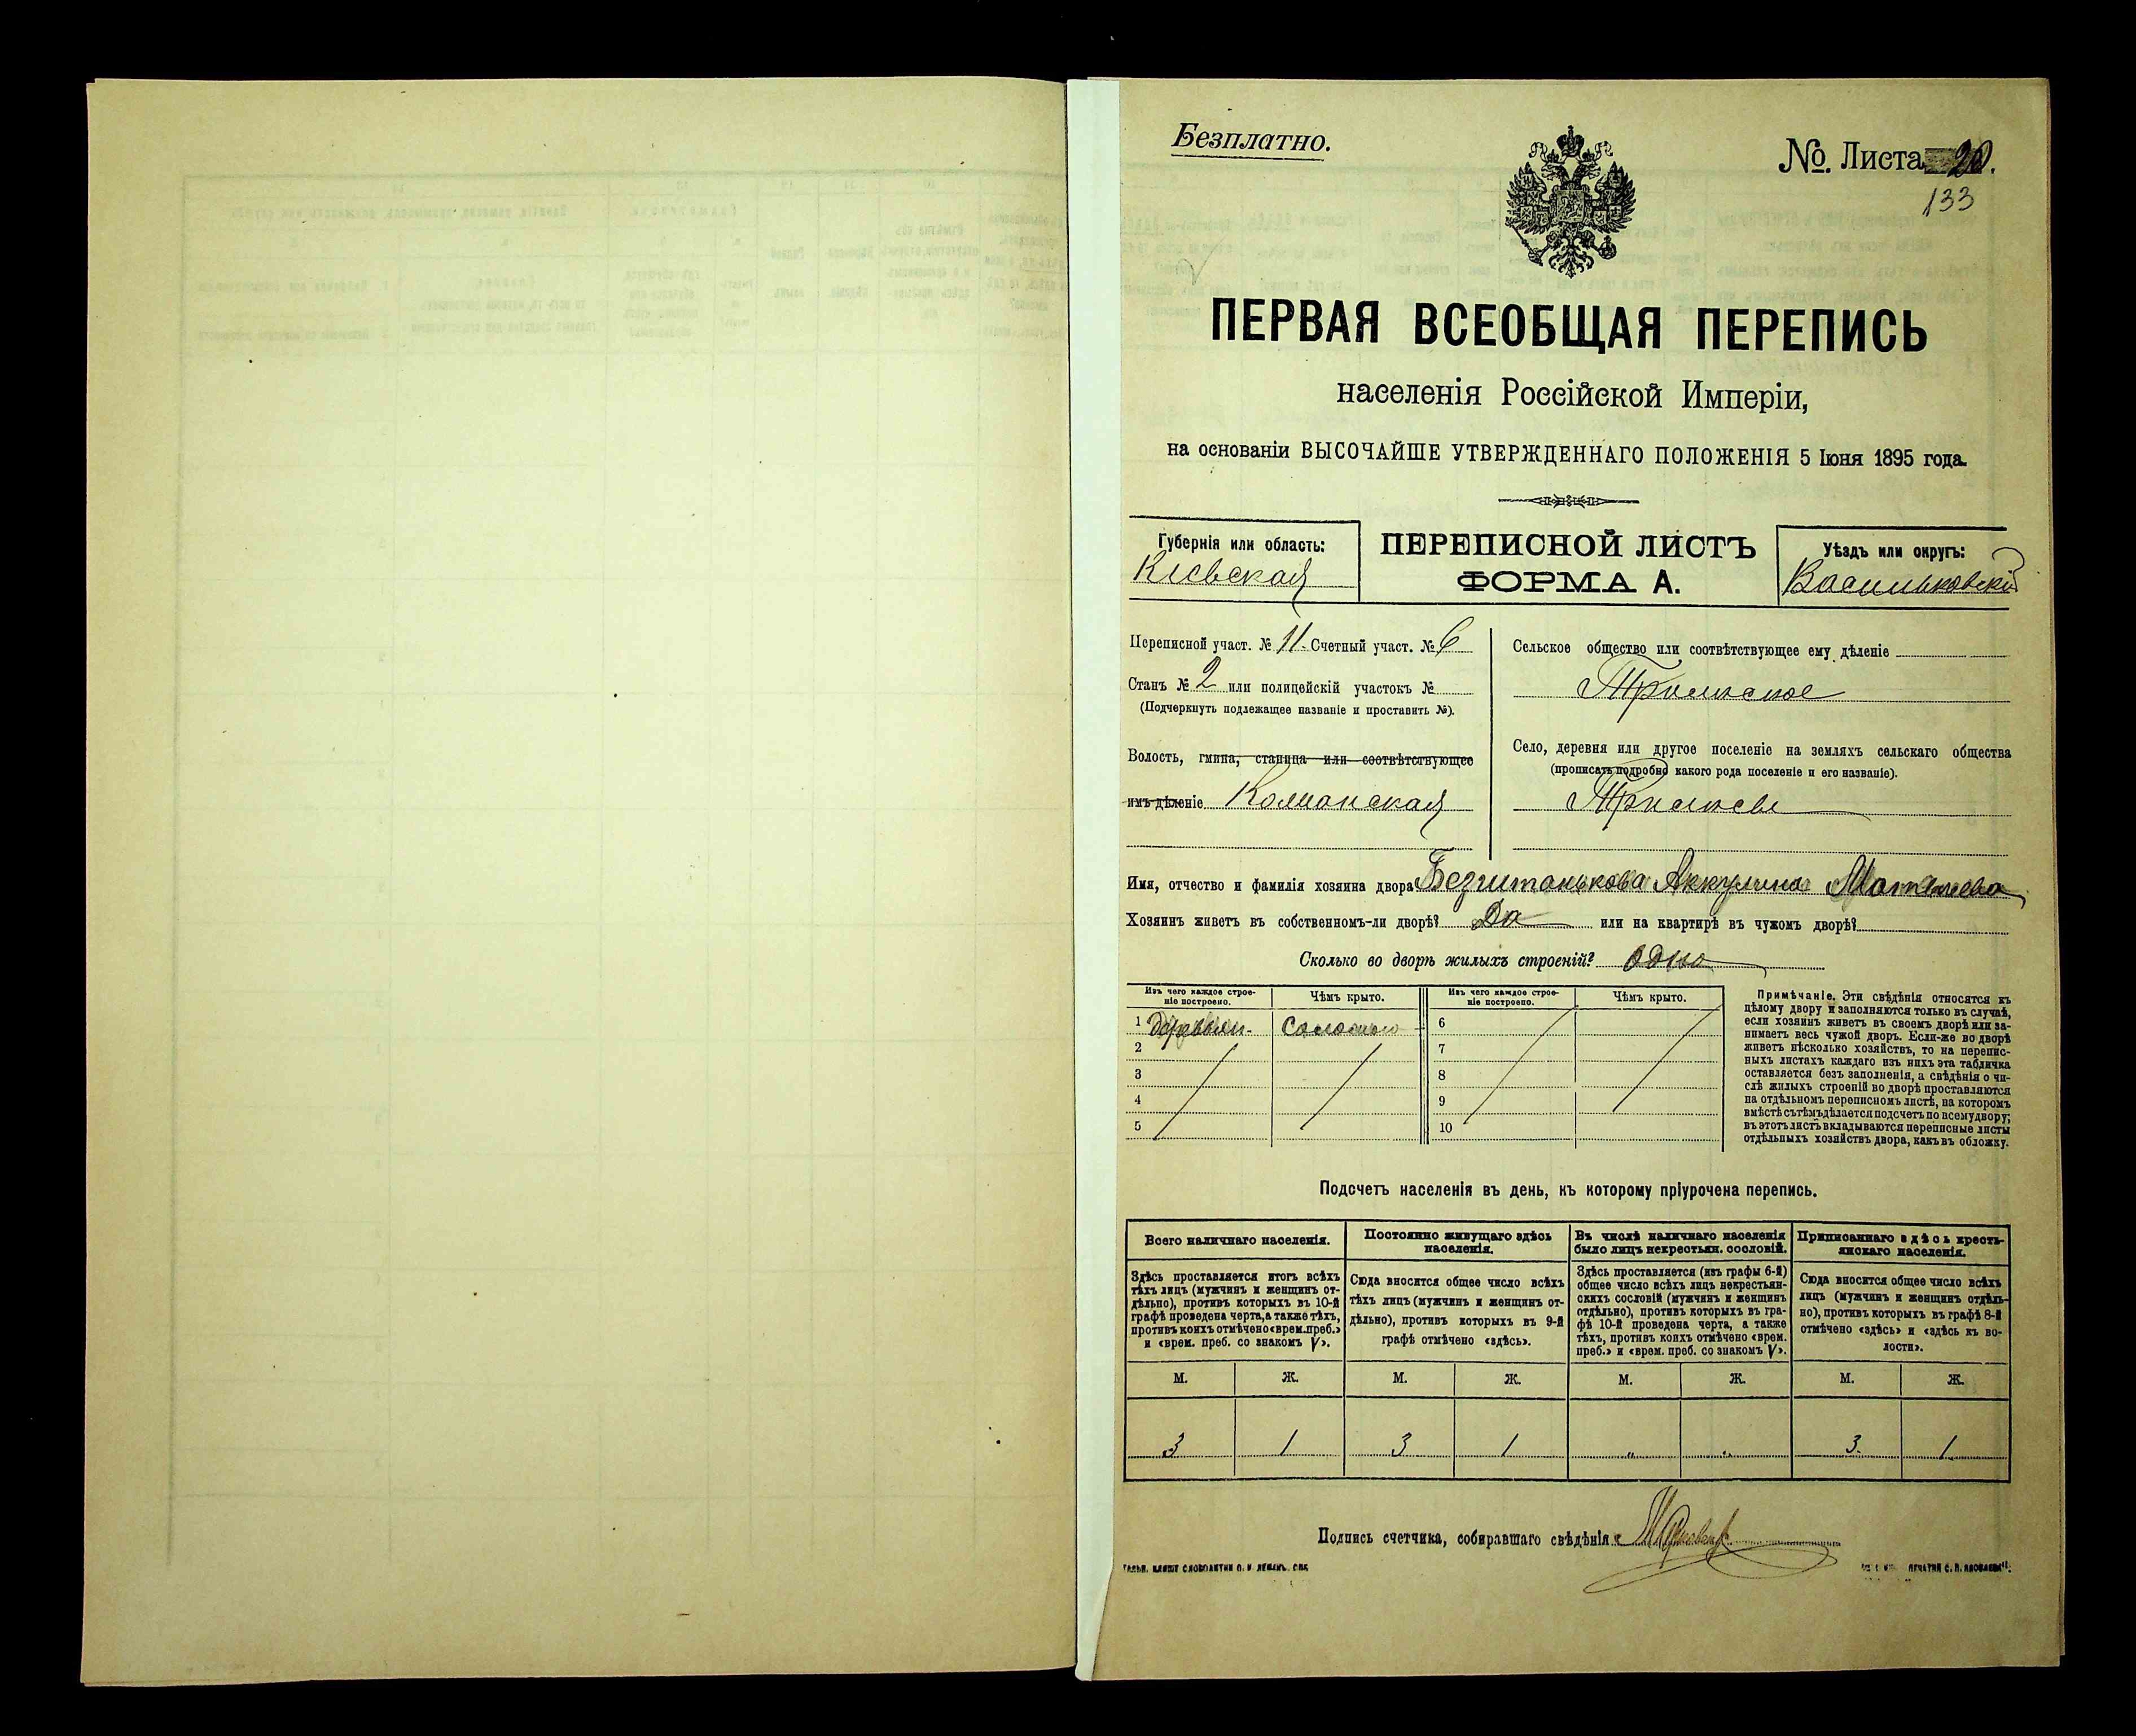 Безплатно.
№. Листа 20.
133
ПЕРВАЯ ВСЕОБЩАЯ ПЕРЕПИСЬ
населенія Россійской Имперіи,
на основаніи ВЫСОЧАЙШЕ УТВЕРЖДЕННАГО ПОЛОЖЕНІЯ 5 Іюня 1895 года.
Губернія или область:
Кіевская
ПЕРЕПИСНОЙ ЛИСТЪ
ФОРМА А.
Уѣздъ или округъ:
Васильковскій
Переписной участ. № 11. Счетный участ. № 6
Станъ № 2 или полицейскій участокъ №
(Подчеркнуть подлежащее названіе и проставить №).
Волость, гмина, станица или соотвѣтствующее
имъ дѣленіе
Сельское общество или соотвѣтствующее ему дѣленіе
Трилиское
Село, деревня или другое поселеніе на земляхъ сельскаго общества
(прописать подробно какого рода поселеніе и его названіе).
Имя, отчество и фамилія хозяина двора Безштанькова Аккулина Матвѣева
Хозяинъ живетъ въ собственномъ-ли дворѣ? Да или на квартирѣ въ чужомъ дворѣ?
Сколько во дворѣ жилыхъ строеній? Одно
Изъ чего каждое строе-
ніе построено.
Чѣмъ крыто.
Изъ чего каждое строе-
ніе построено.
Чѣмъ крыто.
1 деревян. Соломою 6
2 7
3 8
4 9
5 10
Примѣчаніе. Эти свѣдѣнія относятся къ
цѣлому двору и заполняются только въ случаѣ,
если хозяинъ живетъ въ своемъ дворѣ или за-
нимаетъ весь чужой дворъ. Если-же во дворѣ
живетъ нѣсколько хозяйствъ, то на перепис-
ныхъ листахъ каждаго изъ нихъ эта табличка
оставляется безъ заполненія, а свѣдѣнія о чи-
слѣ жилыхъ строеній во дворѣ проставляются
на отдѣльномъ переписномъ листѣ, на которомъ
вмѣстѣ съ тѣмъ дѣлается подсчетъ по всему двору;
въ этотъ листъ вкладываются переписные листы
отдѣльныхъ хозяйствъ двора, какъ въ обложку.
Подсчетъ населенія въ день, къ которому пріурочена перепись.
Всего наличнаго населенія.
Постоянно живущаго здѣсь
населенія.
Въ числѣ наличнаго населенія
было лицъ некрестьян. сословій.
Приписаннаго здѣсь кресть-
янскаго населенія.
Здѣсь проставляется итогъ всѣхъ
тѣхъ лицъ (мужчинъ и женщинъ от-
дѣльно), противъ которыхъ въ 10-й
графѣ проведена черта, а также тѣхъ,
противъ коихъ отмѣчено «врем. преб.»
и «врем. преб. со знакомъ V».
Сюда вносится общее число всѣхъ
тѣхъ лицъ (мужчинъ и женщинъ от-
дѣльно), противъ которыхъ въ 9-й
графѣ отмѣчено «здѣсь».
Здѣсь проставляется (изъ графы 6-й)
общее число всѣхъ лицъ некрестьян-
скихъ сословій (мужчинъ и женщинъ
отдѣльно), противъ которыхъ въ гра-
фѣ 10-й проведена черта, а также
тѣхъ, противъ коихъ отмѣчено «врем.
преб.» и «врем. преб. со знакомъ V».
Сюда вносится общее число всѣхъ
лицъ (мужчинъ и женщинъ отдѣль-
но), противъ которыхъ въ графѣ 8-й
отмѣчено «здѣсь» и «здѣсь къ во-
лости».
М. Ж. М. Ж. М. Ж. М. Ж.
3 1 3 1 " " 3. 1
Подпись счетчика, собиравшаго свѣдѣнія